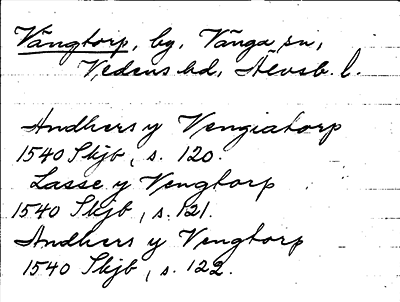 Vängtorp, by, Vånga sn,
Vedens hd, Älvsb. l.
Andhers y Vengiatorp
1540 Skjb, s. 120.
Lasse y Vengtorp
1540 Skjb, s. 121.
Andhers y Vengtorp
1540 Skjb, s. 122.